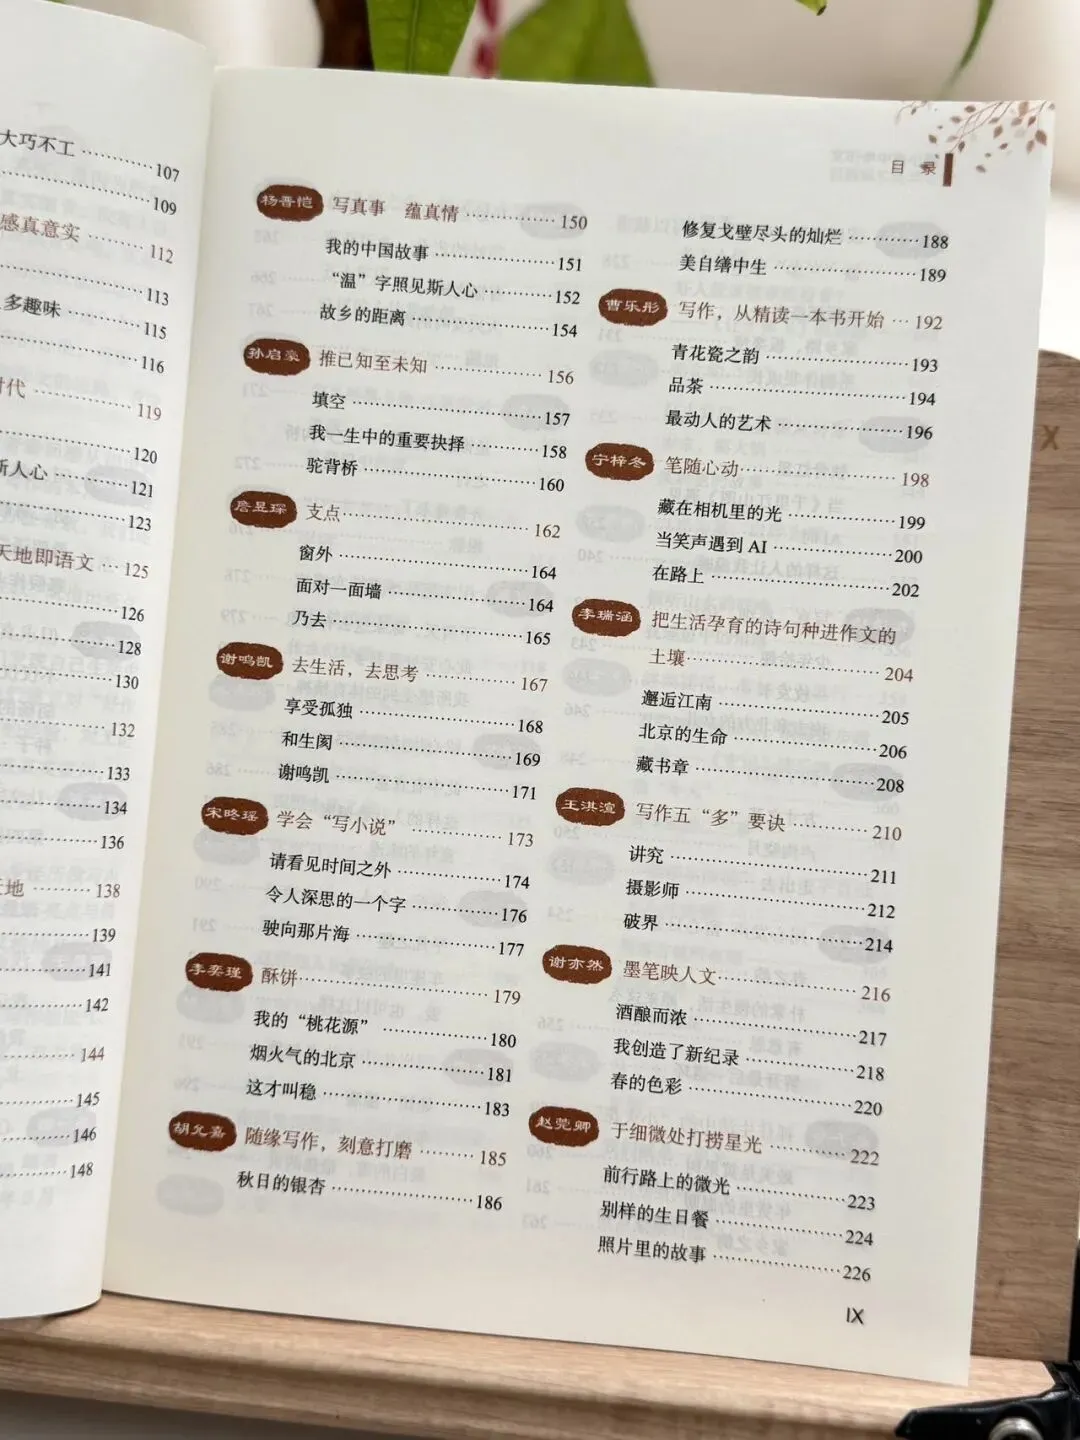 大巧不工 ………… 107
109
感真意实 ………… 112
113
多趣味 ………… 115
116
时代 ………… 119
120
斯人心 ………… 121
123
天地即语文 … 125
126
128
130
132
133
134
136
地 ……… 138
139
141
142
144
145
146
148
目 录
杨晋恺 写真事 蕴真情 ………… 150
我的中国故事 ………… 151
“温”字照见斯人心 ………… 152
故乡的距离 ………… 154
孙启豪 推已知至未知 ………… 156
填空 ………… 157
我一生中的重要抉择 ………… 158
驼背桥 ………… 160
詹昱琛 支点 ………… 162
窗外 ………… 164
面对一面墙 ………… 164
乃去 ………… 165
谢鸣凯 去生活，去思考 ………… 167
享受孤独 ………… 168
和生阂 ………… 169
谢鸣凯 ………… 171
宋昸瑶 学会“写小说” ………… 173
请看见时间之外 ………… 174
令人深思的一个字 ………… 176
驶向那片海 ………… 177
李奕瑾 酥饼 ………… 179
我的“桃花源” ………… 180
烟火气的北京 ………… 181
这才叫稳 ………… 183
胡允嘉 随缘写作，刻意打磨 ………… 185
秋日的银杏 ………… 186
修复戈壁尽头的灿烂 ………… 188
美自缮中生 ………… 189
曹乐彤 写作，从精读一本书开始 … 192
青花瓷之韵 ………… 193
品茶 ………… 194
最动人的艺术 ………… 196
宁梓冬 笔随心动 ………… 198
藏在相机里的光 ………… 199
当笑声遇到 AI ………… 200
在路上 ………… 202
李瑞涵 把生活孕育的诗句种进作文的
土壤 ………… 204
邂逅江南 ………… 205
北京的生命 ………… 206
藏书章 ………… 208
王淇渲 写作五“多”要诀 ………… 210
讲究 ………… 211
摄影师 ………… 212
破界 ………… 214
谢亦然 墨笔映人文 ………… 216
酒酿而浓 ………… 217
我创造了新纪录 ………… 218
春的色彩 ………… 220
赵莞卿 于细微处打捞星光 ………… 222
前行路上的微光 ………… 223
别样的生日餐 ………… 224
照片里的故事 ………… 226
IX